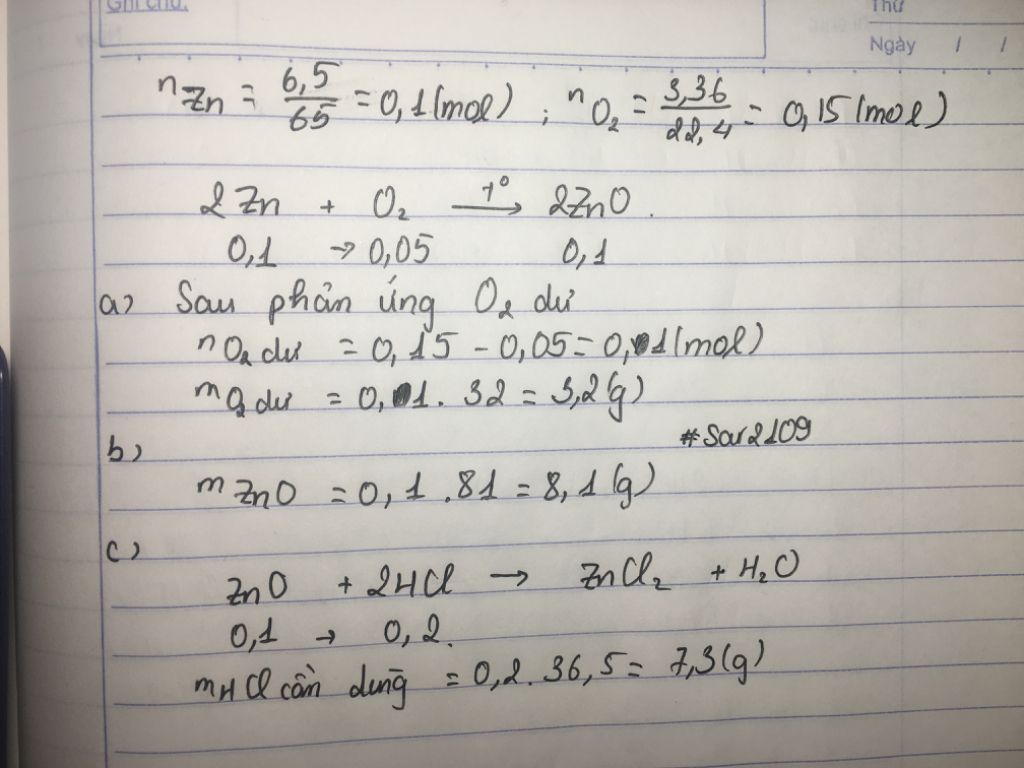 Ghi chú:
Thứ
Ngày / /
nZn = 6,5/65 = 0,1 (mol) ; nO₂ = 3,36/22,4 = 0,15 (mol)
2Zn + O₂ –t°→ 2ZnO.
0,1 → 0,05 0,1
a) Sau phản ứng O₂ dư
nO₂ dư = 0,15 - 0,05 = 0,1 (mol)
mO₂ dư = 0,1 . 32 = 3,2 (g)
#Sar2109
b)
mZnO = 0,1 . 81 = 8,1 (g)
c)
ZnO + 2HCl → ZnCl₂ + H₂O
0,1 → 0,2.
mHCl cần dùng = 0,2 . 36,5 = 7,3 (g)